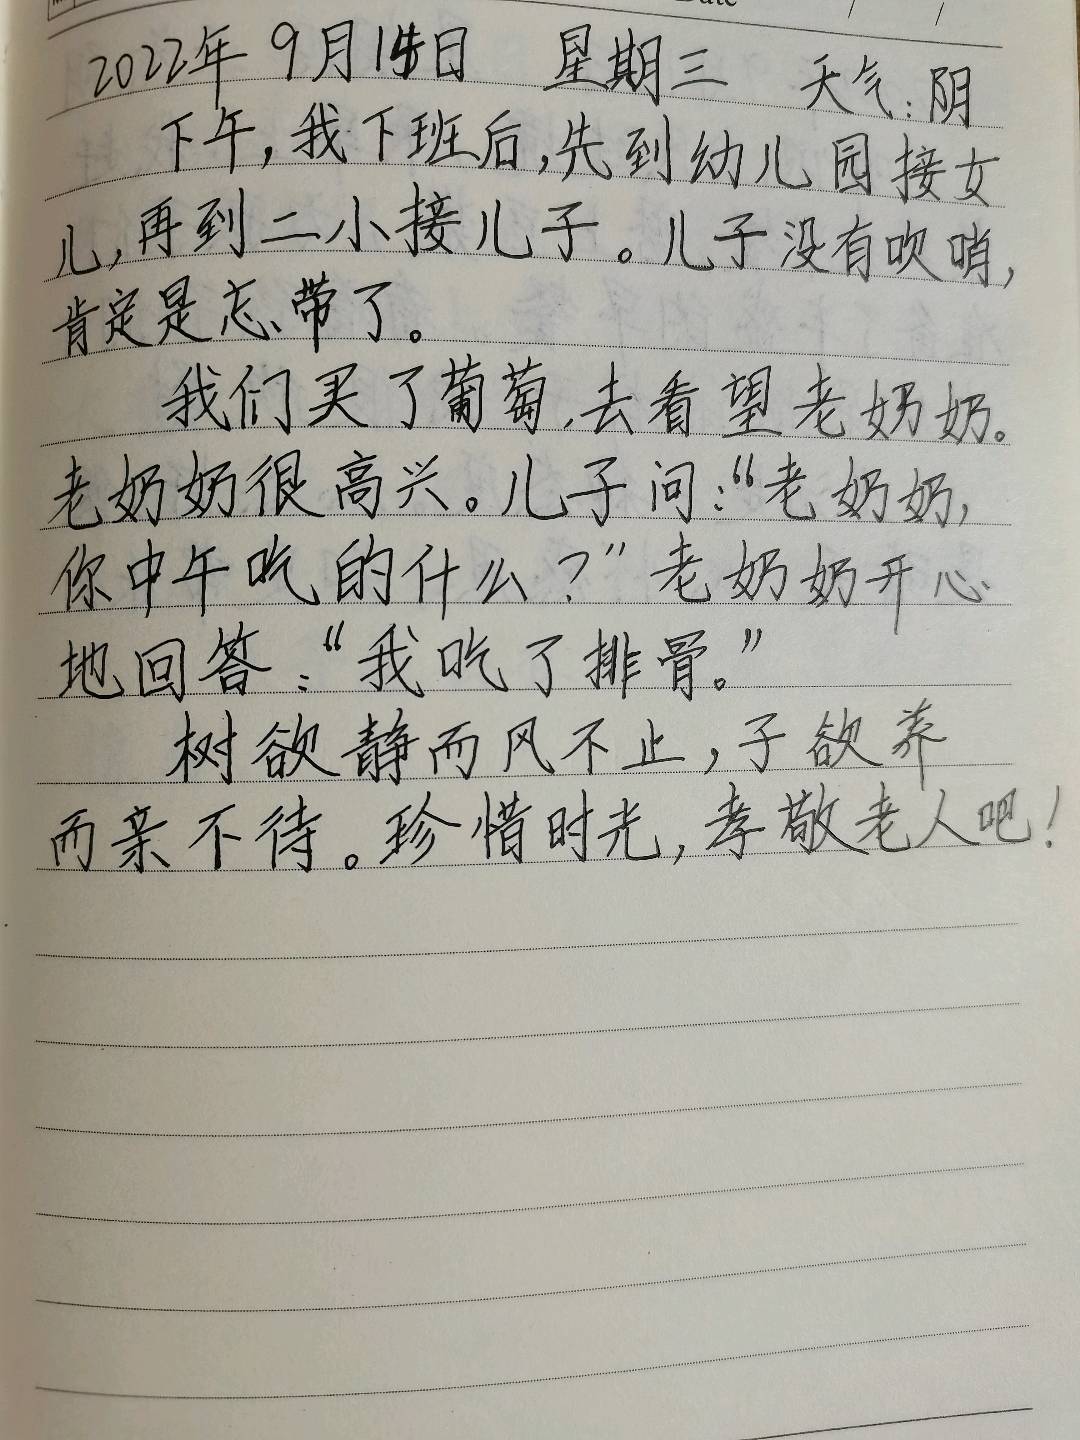 2022年9月14日 星期三 天气:阴
下午,我下班后,先到幼儿园接女
儿,再到二小接儿子。儿子没有吹哨,
肯定是忘带了。
我们买了葡萄,去看望老奶奶。
老奶奶很高兴。儿子问:“老奶奶,
你中午吃的什么?”老奶奶开心
地回答:“我吃了排骨。”
树欲静而风不止,子欲养
而亲不待。珍惜时光,孝敬老人吧!